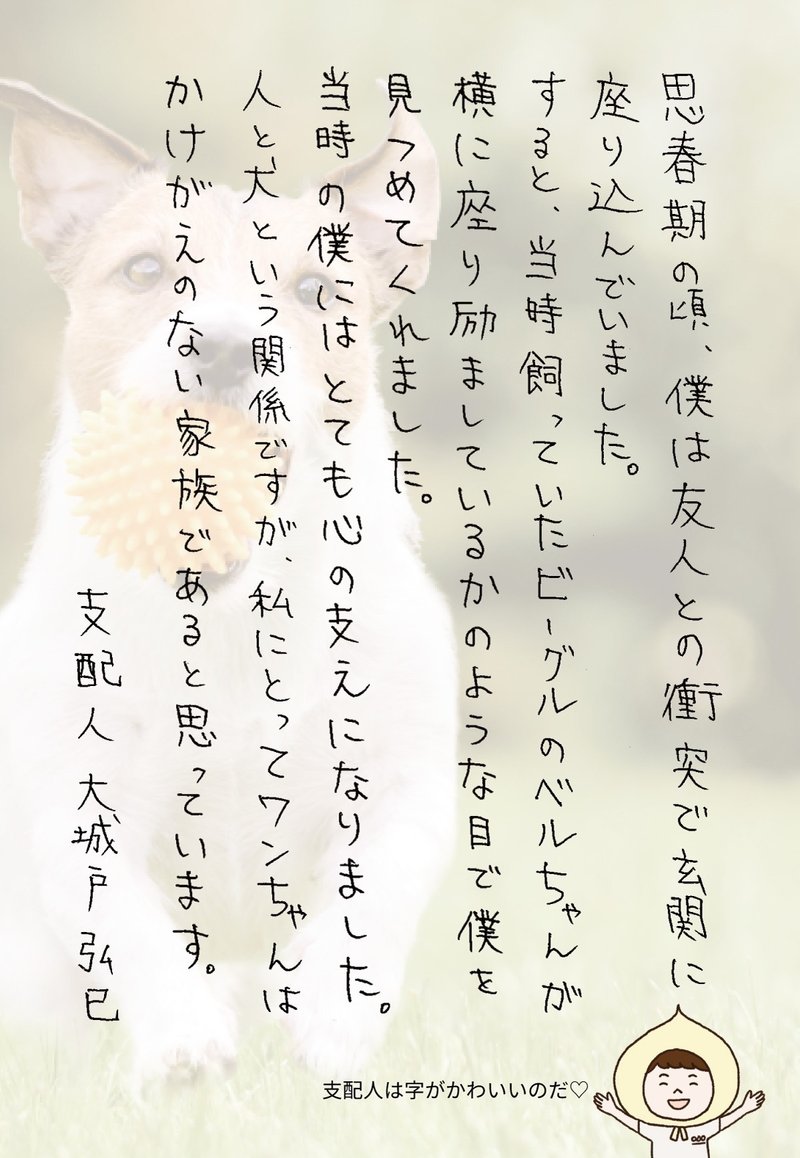 思春期の頃、僕は友人との衝突で玄関に
座り込んでいました。
すると、当時飼っていたビーグルのベルちゃんが
横に座り励ましているかのような目で僕を
見つめてくれました。
当時の僕にはとても心の支えになりました。
人と犬という関係ですが、私にとってワンちゃんは
かけがえのない家族であると思っています。
支配人 大城戸 弘巳
支配人は字がかわいいのだ♡